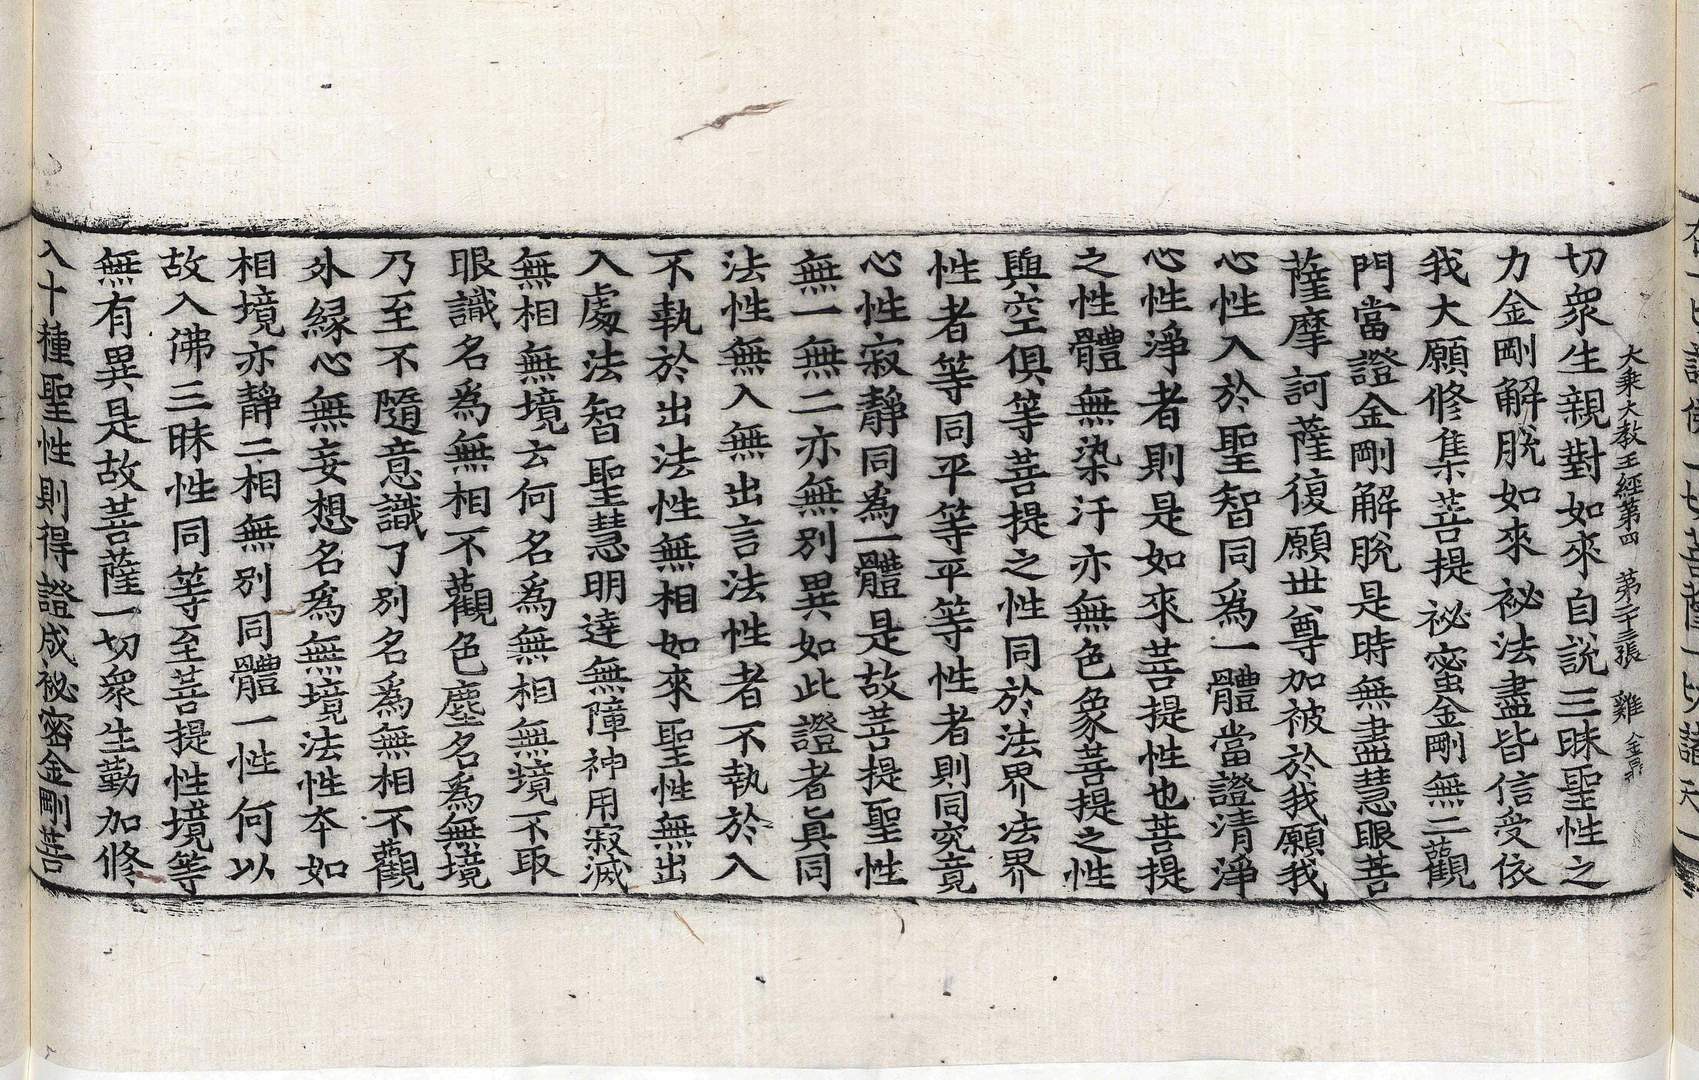 大乘大教王經第四　第二十三張　雞　金鼎
切衆生親對如來自說三昧聖性之
力金剛解脫如來祕法盡皆信受依
我大願修集菩提祕蜜金剛無二觀
門當證金剛解脫是時無盡慧眼菩
薩摩訶薩復願世尊加被於我願我
心性入於聖智同爲一體當證清淨
心性淨者則是如來菩提性也菩提
之性體無染汙亦無色象菩提之性
與空俱等菩提之性同於法界法界
性者等同平等平等性者則同究竟
心性寂靜同爲一體是故菩提聖性
無一無二亦無別異如此證者眞同
法性無入無出言法性者不執於入
不執於出法性無相如來聖性無出
入處法智聖慧明達無障神用寂滅
無相無境云何名爲無相無境不取
眼識名爲無相不觀色塵名爲無境
乃至不隨意識了別名爲無相不觀
外緣心無妄想名爲無境法性本如
相境亦靜二相無別同體一性何以
故入佛三昧性同等至菩提性境等
無有異是故菩薩一切衆生勤加修
入十種聖性則得證成祕密金剛菩